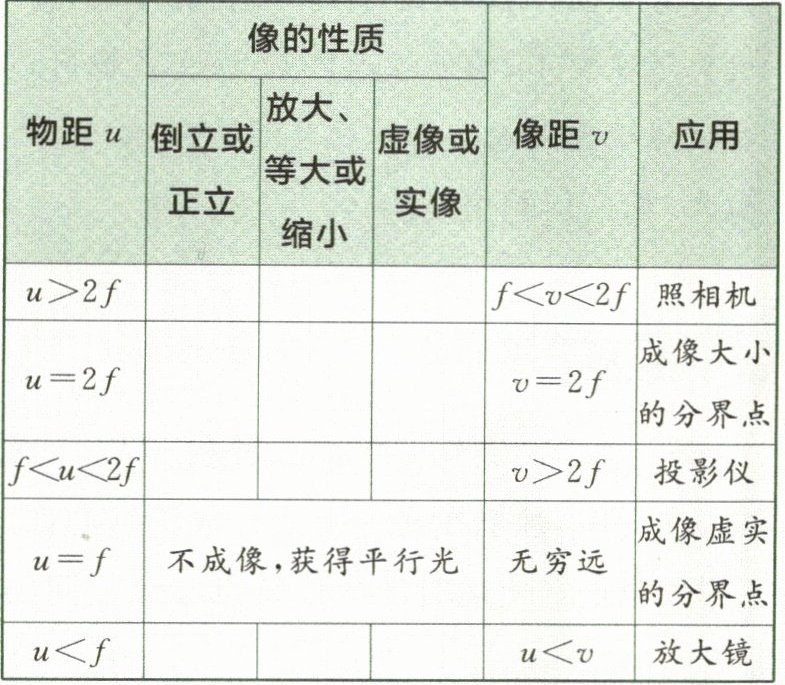 像的性质
物距 u
倒立或
正立
放大、
等大或
缩小
虚像或
实像
像距 v
应用
u>2f
f<v<2f
照相机
u=2f
v=2f
成像大小
的分界点
f<u<2f
v>2f
投影仪
u=f
不成像,获得平行光
无穷远
成像虚实
的分界点
u<f
u<v
放大镜